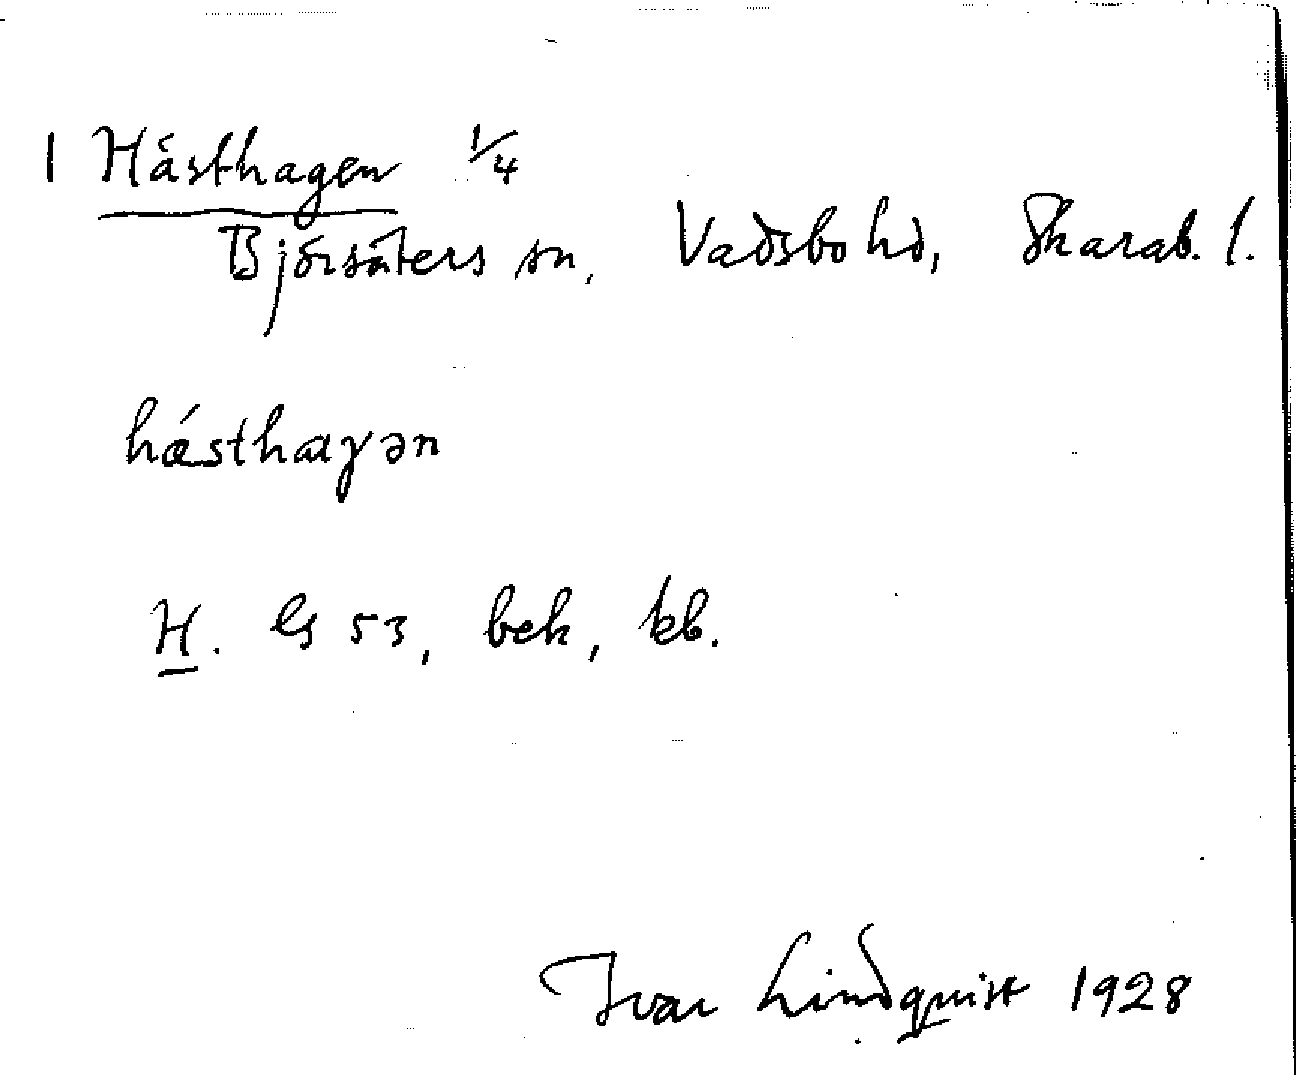 1 Hästhagen 1/4
Björsäters sn, Vadsbo hd, Skarab. l.
hǽsthaγən
H. G 53, bek, kb.
Ivar Lindquist 1928